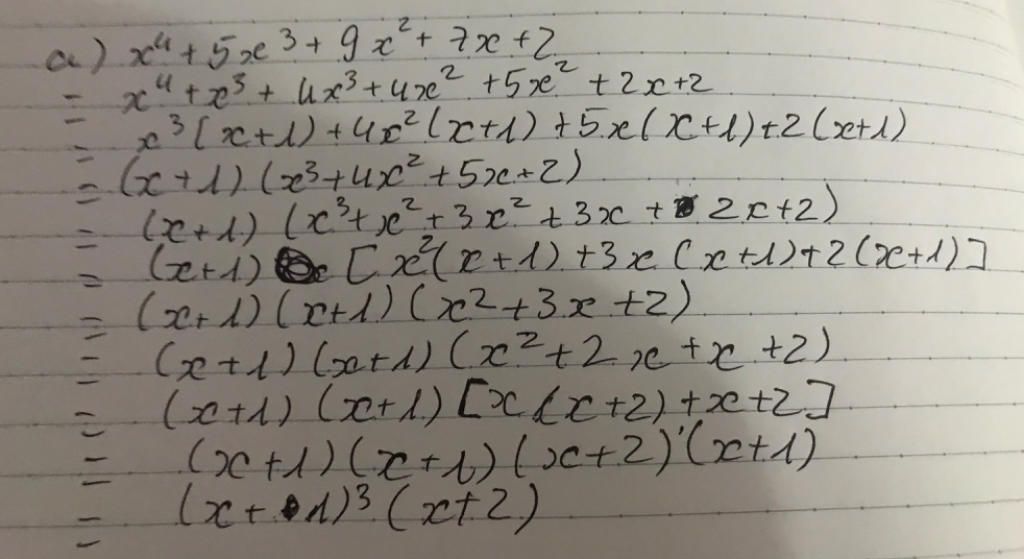 a) x⁴ + 5x³ + 9x² + 7x + 2
= x⁴ + x³ + 4x³ + 4x² + 5x² + 2x + 2
= x³(x+1) + 4x²(x+1) + 5x(x+1) + 2(x+1)
= (x+1)(x³+4x²+5x+2)
= (x+1)(x³+x²+3x²+3x+2x+2)
= (x+1)[x²(x+1)+3x(x+1)+2(x+1)]
= (x+1)(x+1)(x²+3x+2)
= (x+1)(x+1)(x²+2x+x+2)
= (x+1)(x+1)[x(x+2)+x+2]
= (x+1)(x+1)(x+2)(x+1)
= (x+1)³(x+2)